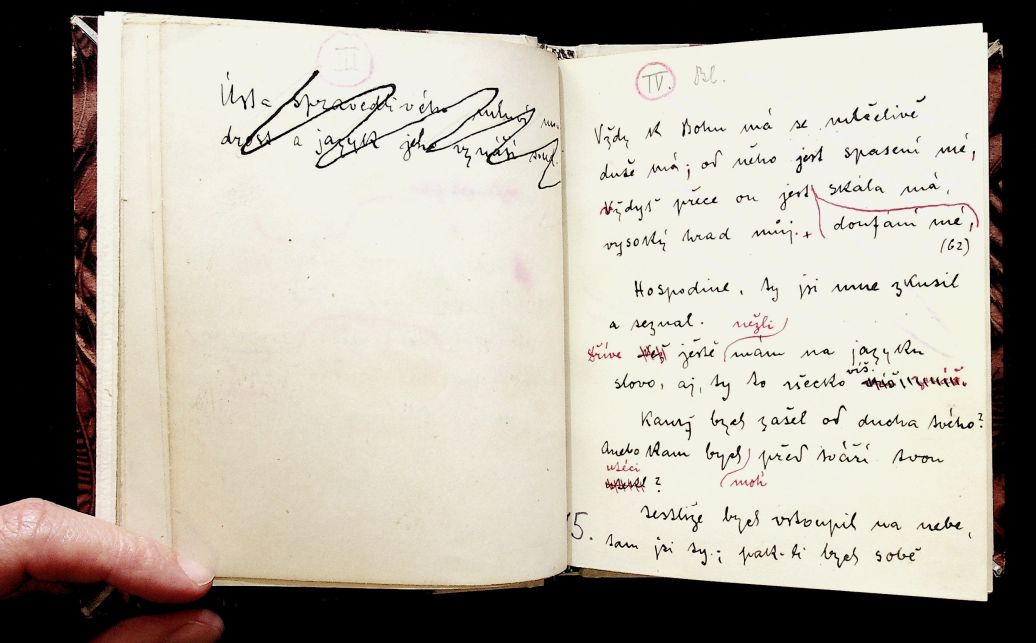 III
Ústa spravedlivého mluví mou-
drost a jazyk jeho vynáší soud.
IV. Bl.
Vždy k Bohu má se mlčelivě
duše má; od něho jest spasení mé,
Vždyť přece on jest skála má,
vysoký hrad můj. + doufání mé,
(62)
Hospodine, ty jsi mne zkusil
a seznal. něžli
Dříve ještě mám na jazyku
slovo, aj, ty to všecko víš.
Kamž bych zašel od ducha tvého?
Anebo kam bych před tváří tvou
utéci ? moh
Jestliže bych vstoupil na nebe,
5. tam jsi ty; pak-li bych sobě